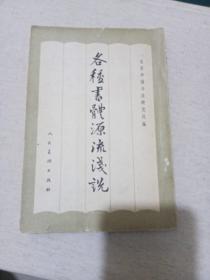 北京中国书法研究社编
各種書體源流淺說
人民美術出版社